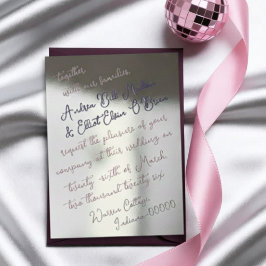 together
with our families,
Andrea Beth Madison
& Elliot Elvin O'Brien
request the pleasure of your
company at their wedding on
twenty-sixth of March,
two thousand twenty six
Warren Cottage,
Indiana 00000